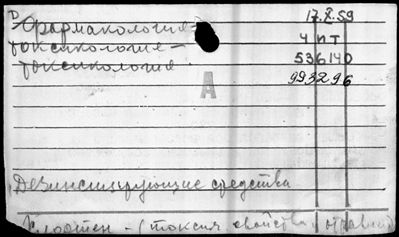 Фармакология-
токсикология-
токсикология
17.X.59
4 п т
536140
993296
А
Дезинсицирующие средства
Хлортен - (токсич. свойства